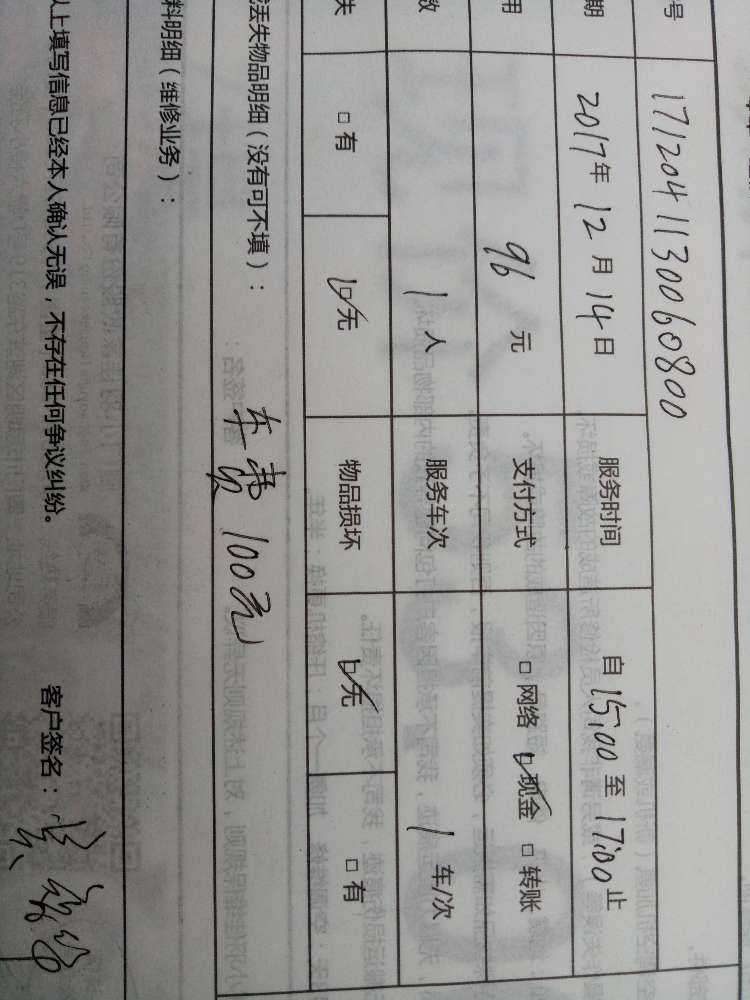 号 17120411300 60800
期 2017年12月14日 服务时间 自 15:00 至 17:00 止
用 96 元 支付方式 □ 网络 ☑ 现金 □ 转账
数 1 人 服务车次 1 车/次
失 □ 有 ☑ 无 物品损坏 ☑ 无 □ 有
法失物品明细(没有可不填):
车费 100元
料明细(维修业务):
以上填写信息已经本人确认无误,不存在任何争议纠纷。 客户签名: